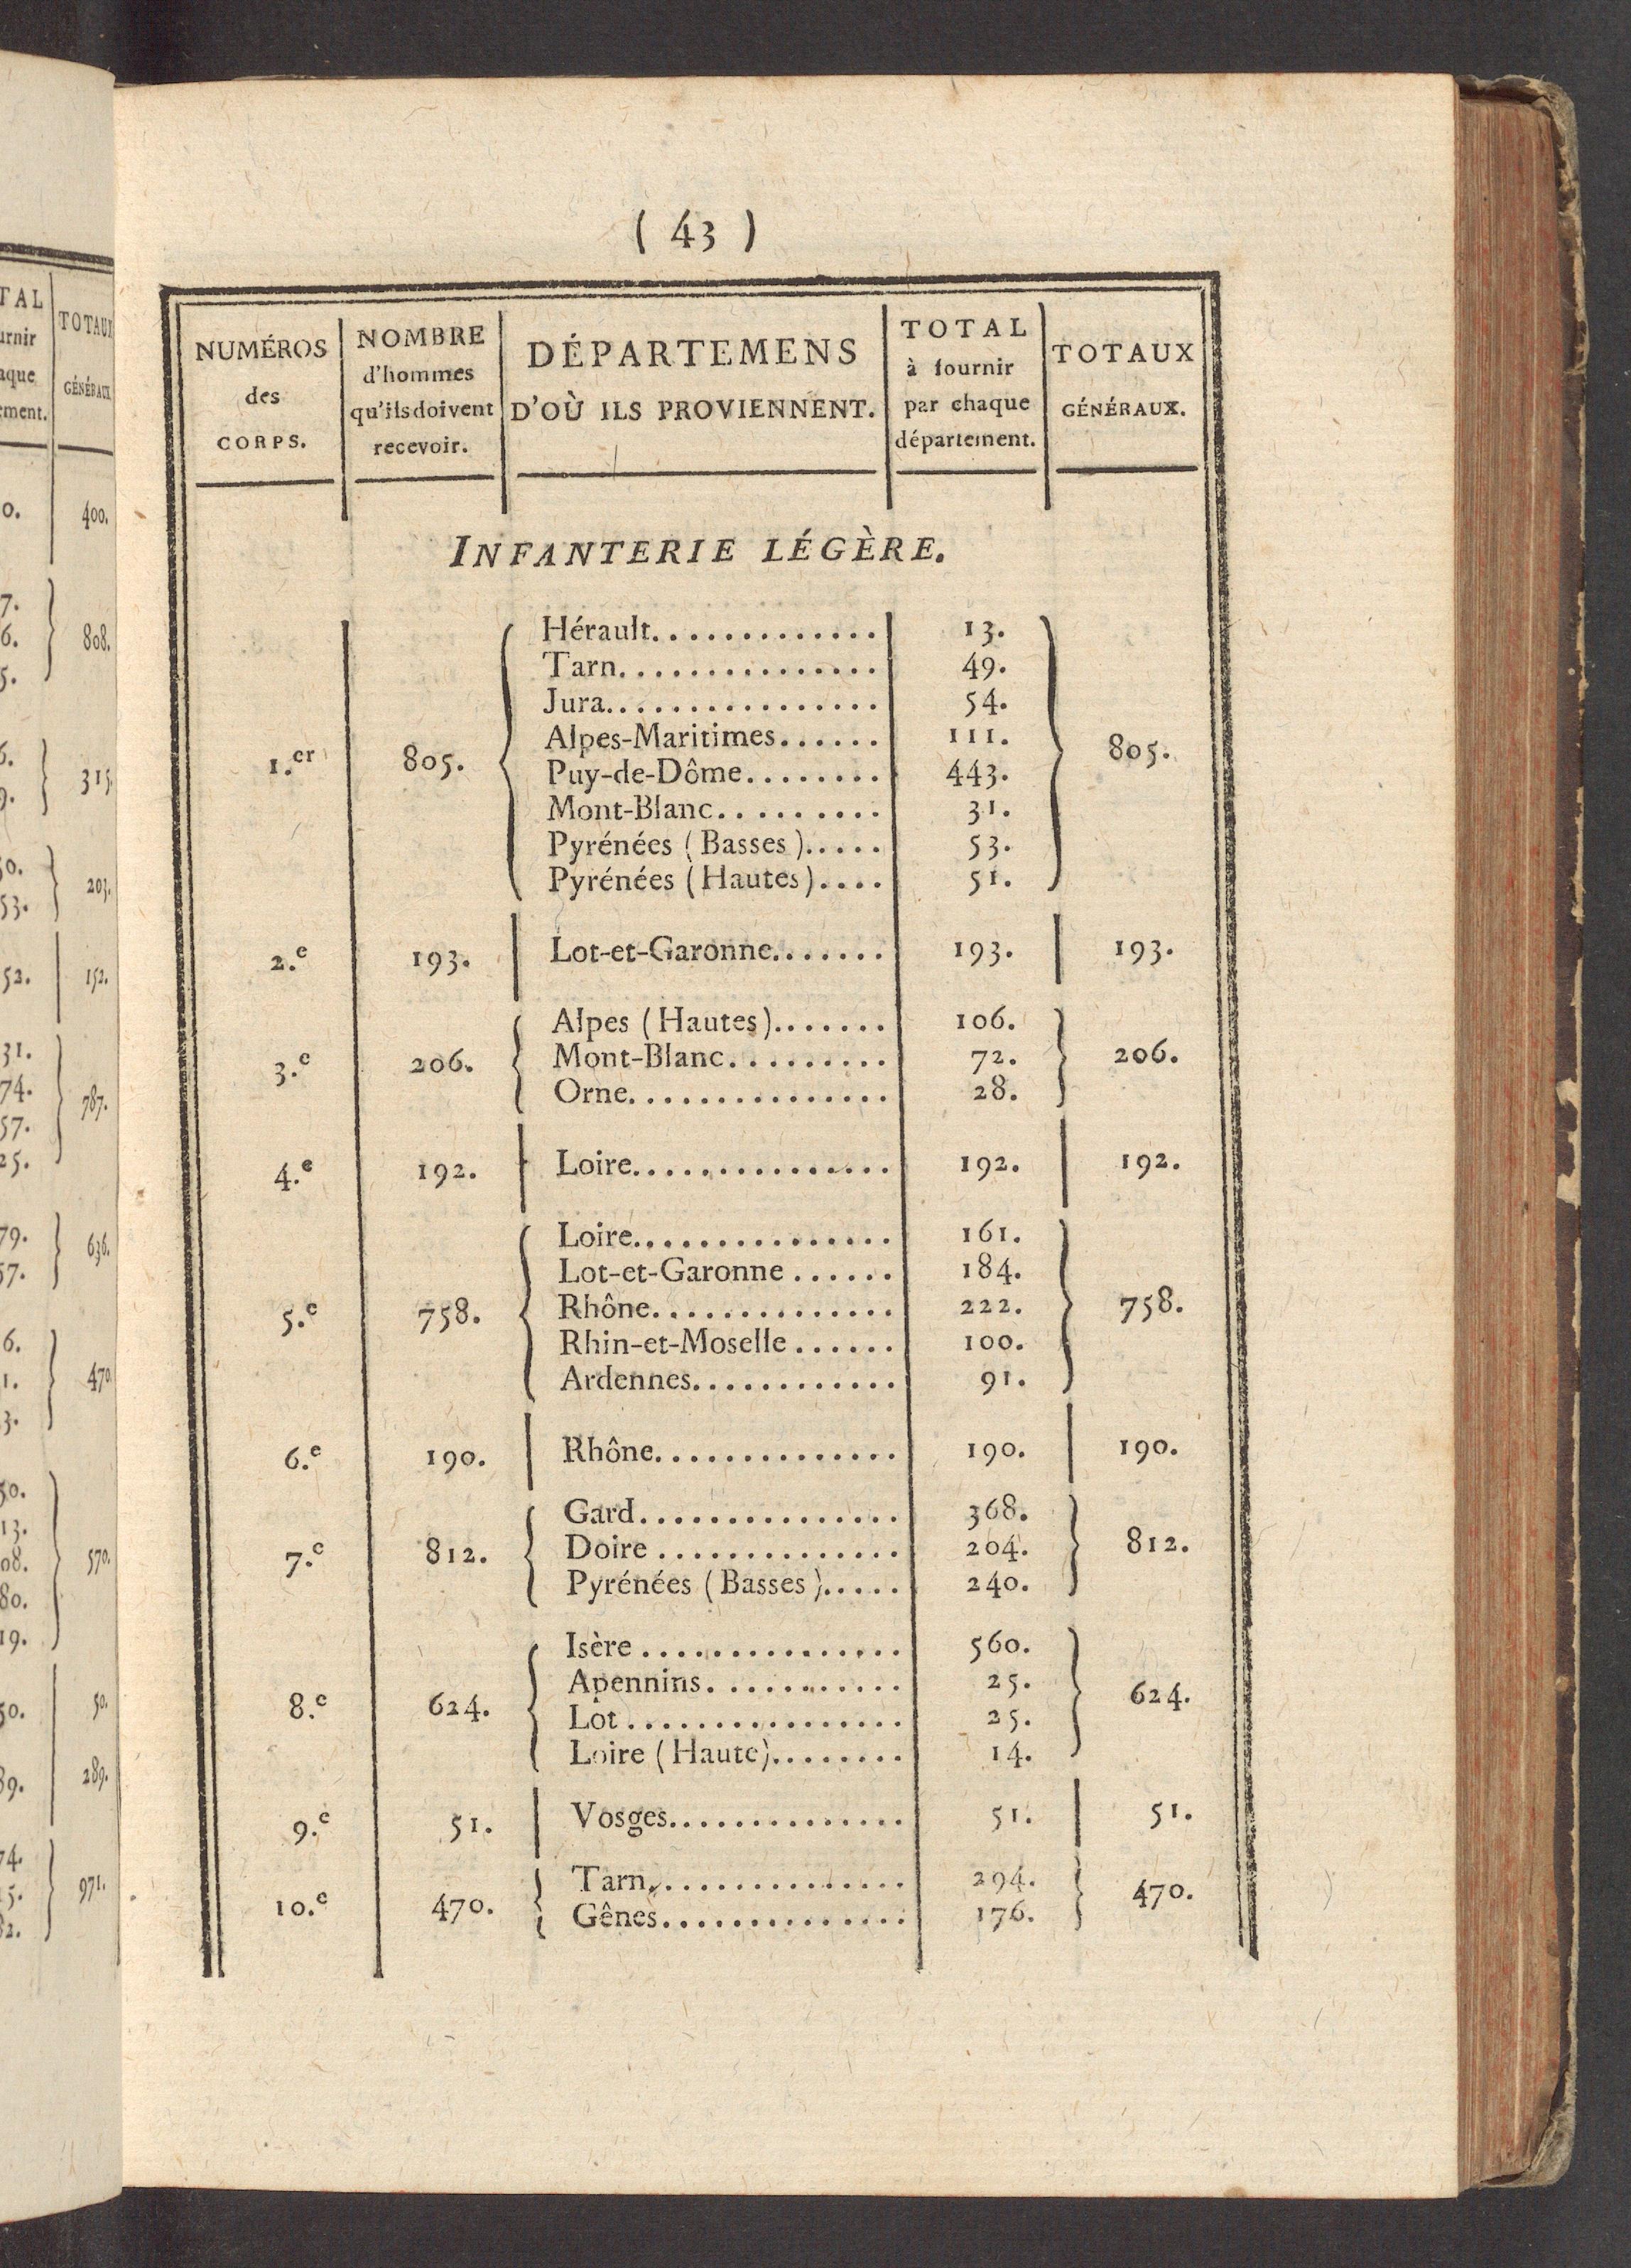 ( 43 )
NUMÉROS des CORPS. | NOMBRE d'hommes qu'ils doivent recevoir. | DÉPARTEMENS D'OÙ ILS PROVIENNENT. | TOTAL à fournir par chaque département. | TOTAUX GÉNÉRAUX.
INFANTERIE LÉGÈRE.
Hérault............. 13.
Tarn............... 49.
Jura................ 54.
Alpes-Maritimes...... 111.
1.er 805. Puy-de-Dôme........ 443. 805.
Mont-Blanc.......... 31.
Pyrénées (Basses)..... 53.
Pyrénées (Hautes).... 51.
2.e 193. Lot-et-Garonne....... 193. 193.
Alpes (Hautes)....... 106.
3.e 206. Mont-Blanc......... 72. 206.
Orne............... 28.
4.e 192. Loire............... 192. 192.
Loire............... 161.
Lot-et-Garonne ...... 184.
5.e 758. Rhône.............. 222. 758.
Rhin-et-Moselle ...... 100.
Ardennes............ 91.
6.e 190. Rhône.............. 190. 190.
Gard............... 368.
7.e 812. Doire .............. 204. 812.
Pyrénées (Basses)..... 240.
Isère ............... 560.
Apennins........... 25.
8.e 624. Lot ................ 25. 624.
Loire (Haute)........ 14.
9.e 51. Vosges.............. 51. 51.
Tarn............... 294.
10.e 470. Gênes.............. 176. 470.
TOTAUX
GÉNÉRAUX
400.
808.
315.
203.
152.
787.
636.
470.
570.
50.
289.
971.